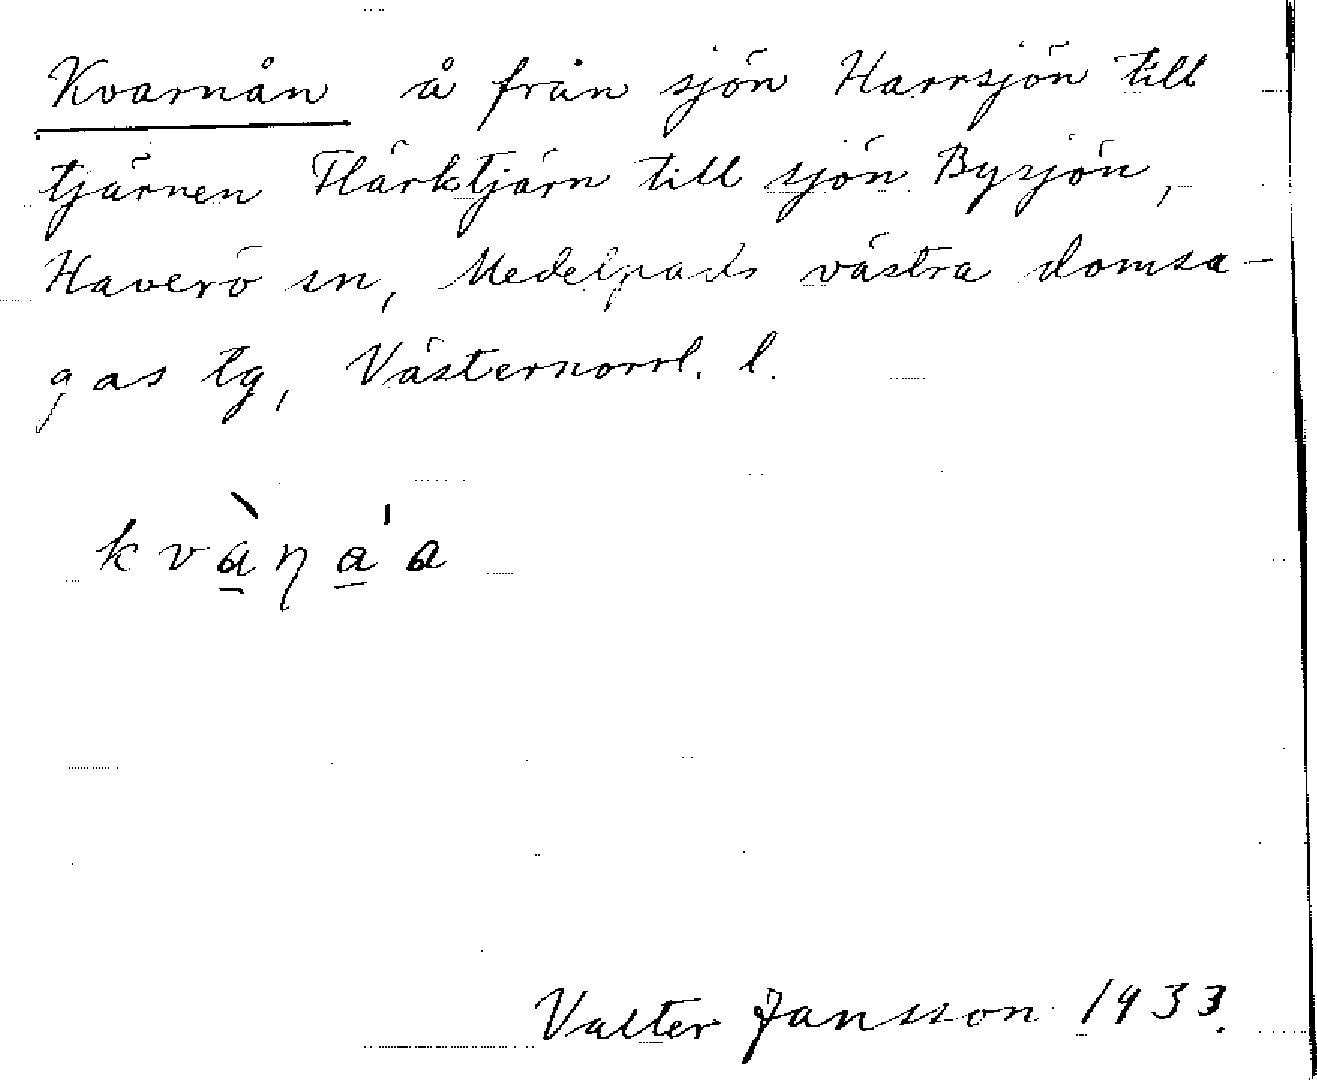 Kvarnån å från sjön Harrsjön till
tjärnen Flärktjärn till sjön Bysjön,
Haverö sn, Medelpads västra domsa-
gas tg, Västernorrl. l.
kvàṇa'a
Valter Jansson 1933.